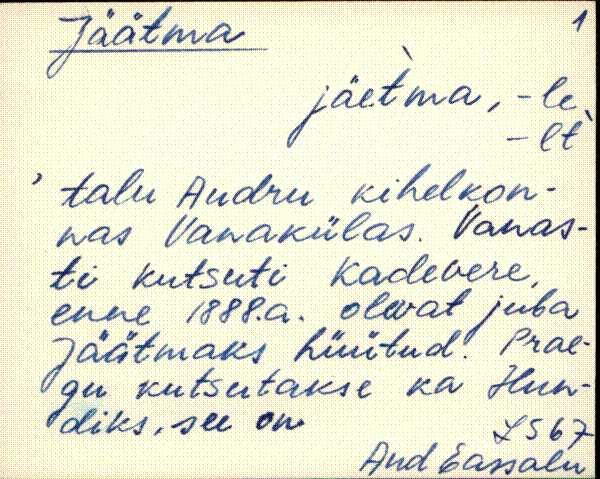 Jäätma 1
jäet̀ma, -le,
-lt
talu Audru kihelkon-
nas Vanakülas. Vanas-
ti kutsuti Kadevere,
enne 1888.a. olevat juba
Jäätmaks hüütud. Prae-
gu kutsutakse ka Hun-
diks, see on
LS 67
Aud Eassalu